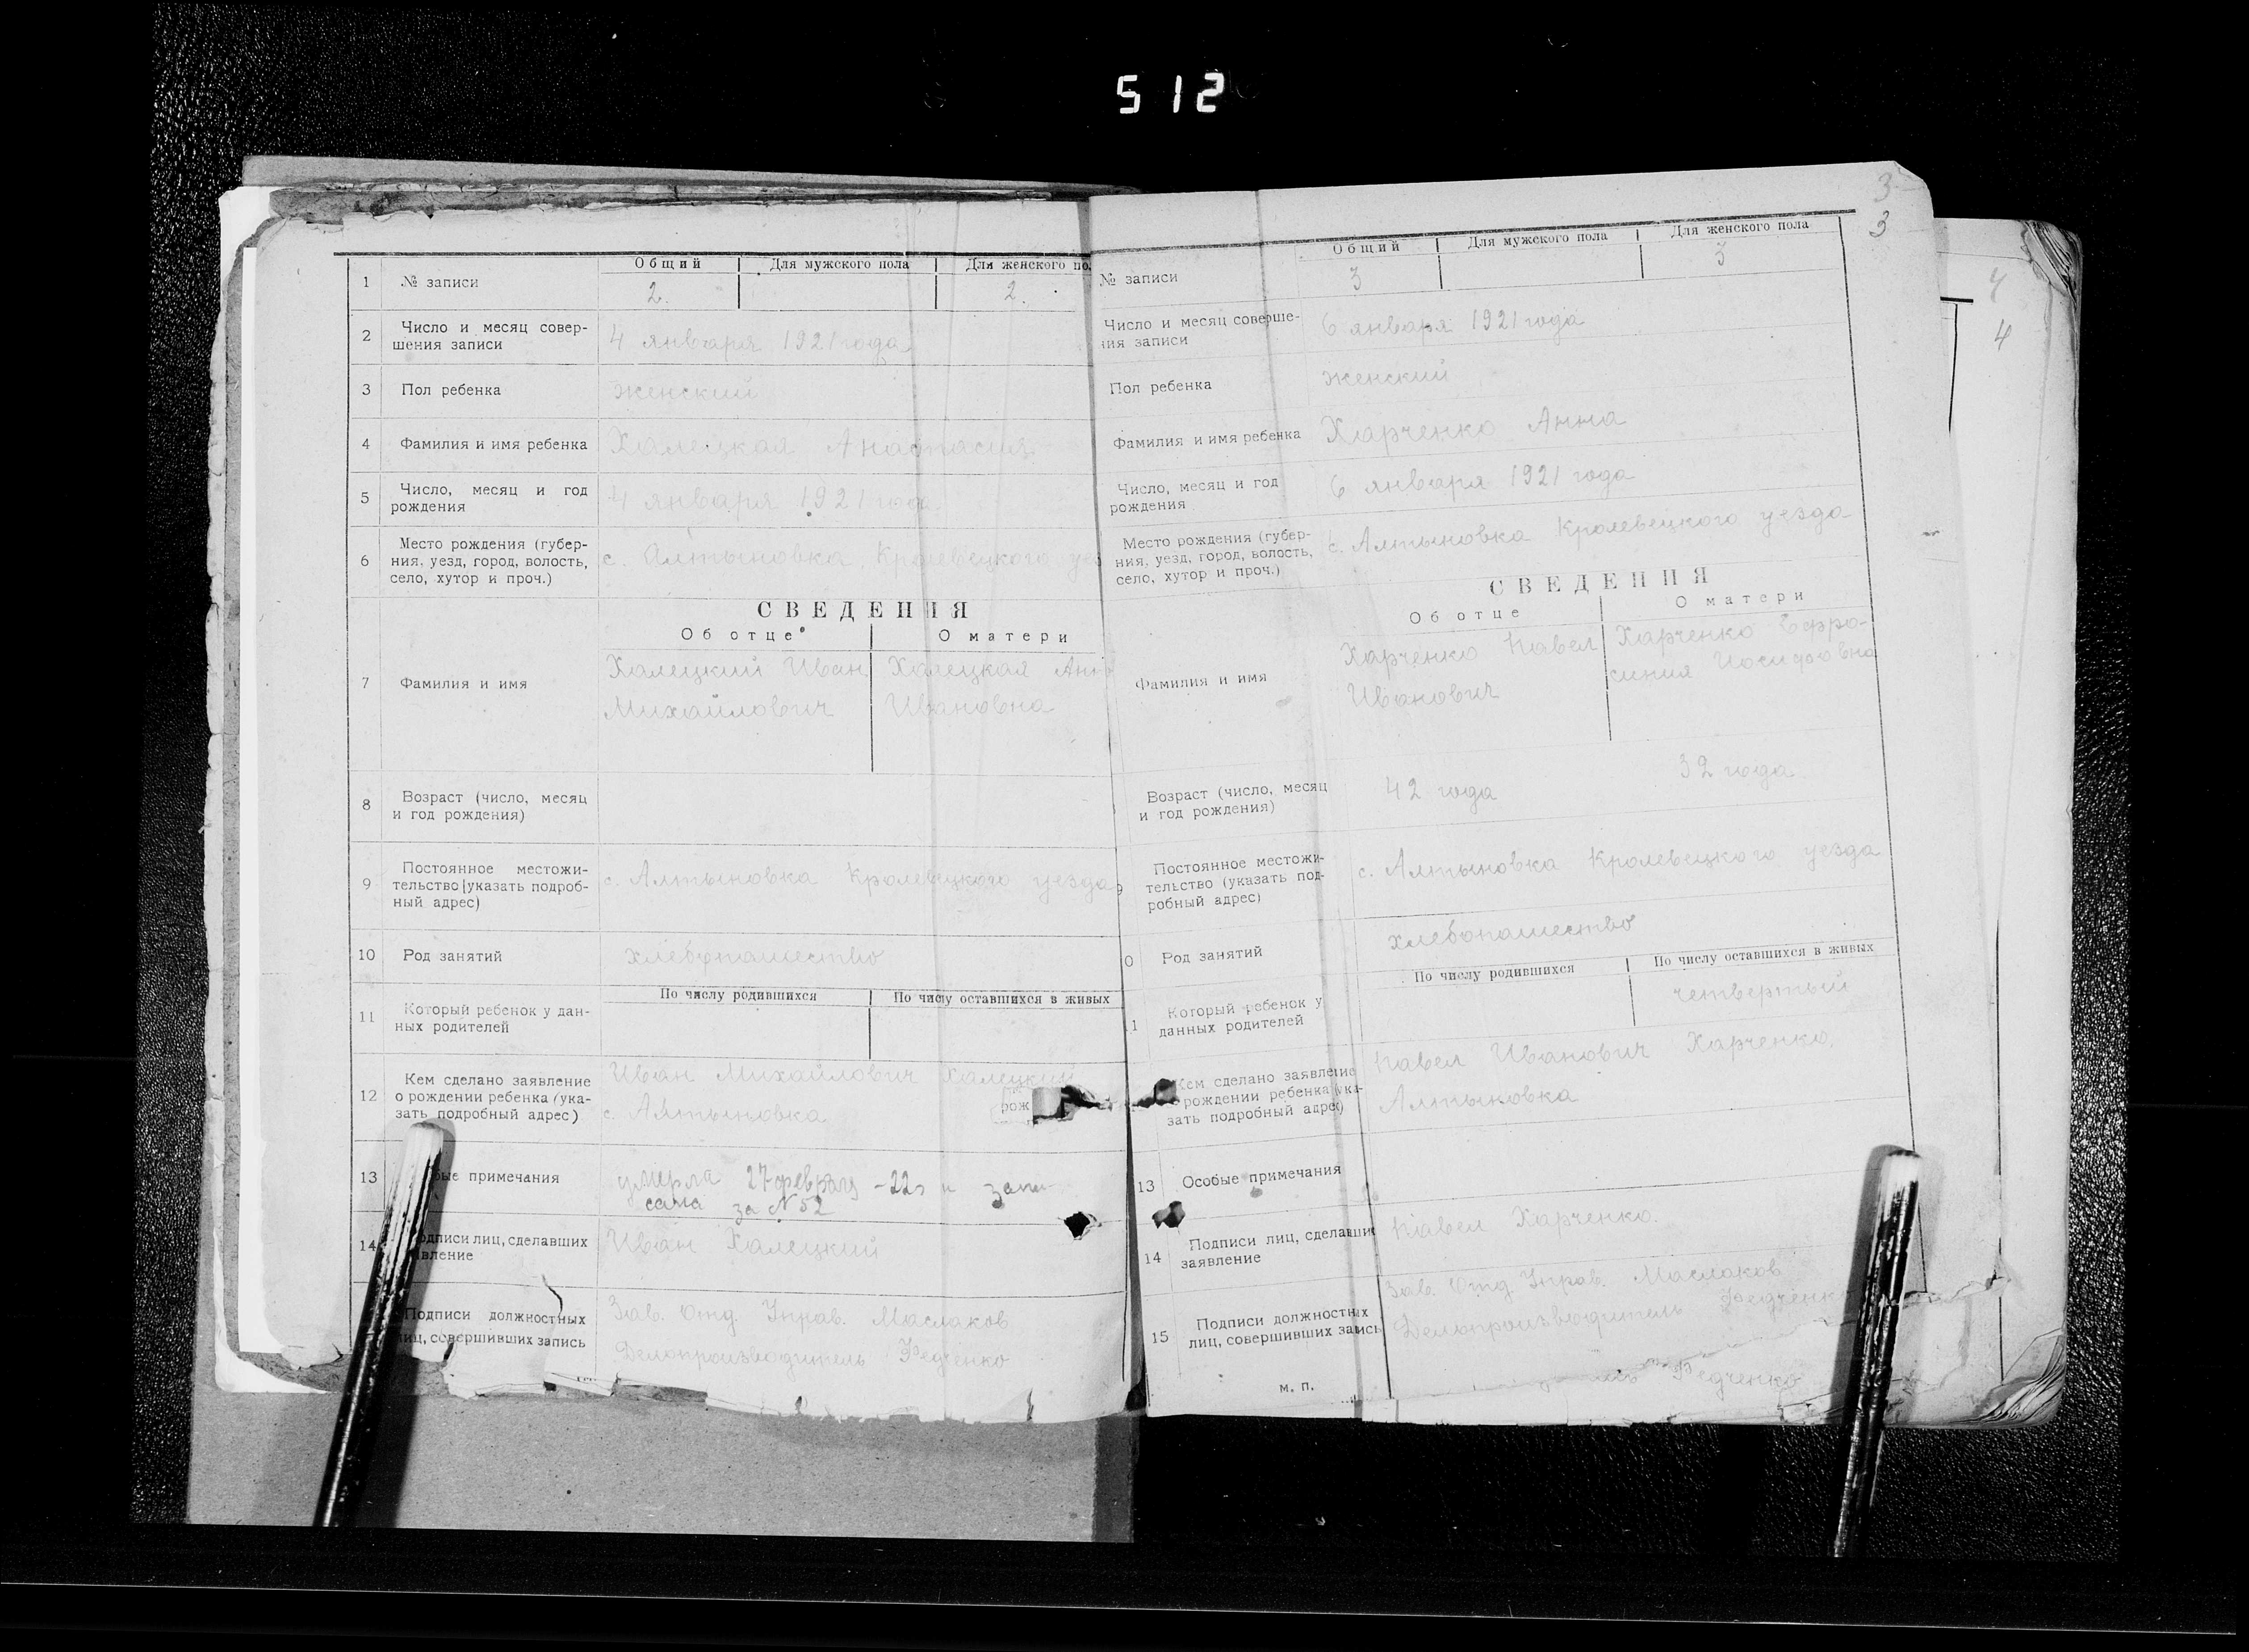 512
Общий Для мужского пола Для женского по
1 № записи 2. 2.
2 Число и месяц совер-
шения записи
4 января 1921 года
3 Пол ребенка женский
4 Фамилия и имя ребенка Халецкая Анастасия
5 Число, месяц и год
рождения
4 января 1921 года
6 Место рождения (губер-
ния, уезд, город, волость,
село, хутор и проч.)
с. Алтыновка Кролевецкого уез
СВЕДЕНИЯ
Об отце О матери
7 Фамилия и имя
Халецкий Иван Халецкая Анна
Михайлович Ивановна
8 Возраст (число, месяц
и год рождения)
9 Постоянное местожи-
тельство (указать подроб-
ный адрес)
с. Алтыновка Кролевецкого уезда
10 Род занятий хлебопашество
По числу родившихся По числу оставшихся в живых
11 Который ребенок у дан-
ных родителей
12 Кем сделано заявление
о рождении ребенка (ука-
зать подробный адрес)
Иван Михайлович Халецкий
с. Алтыновка
рож
13 ые примечания
умерла 27 февраля -22г и запи-
сана за N 52
14 одписи лиц, сделавших
вление
Иван Халецкий
Подписи должностных
лиц, совершивших запись
Зав. Отд. Управ. Маслаков
Делопроизводитель Федченко
3
3
Общий Для мужского пола Для женского пола
№ записи 3 3
Число и месяц соверше-
ния записи
6 января 1921 года
Пол ребенка женский
Фамилия и имя ребенка Харченко Анна
Число, месяц и год
рождения
6 января 1921 года
Место рождения (губер-
ния, уезд, город, волость,
село, хутор и проч.)
с. Алтыновка Кролевецкого уезда
СВЕДЕНИЯ
Об отце О матери
Фамилия и имя
Харченко Павел Харченко Ефро-
Иванович синия Иосифовна
Возраст (число, месяц
и год рождения)
42 года 32 года
9 Постоянное местожи-
тельство (указать под-
робный адрес)
с. Алтыновка Кролевецкого уезда
0 Род занятий хлебопашество
По числу родившихся По числу оставшихся в живых
1 Который ребенок у
данных родителей
четвертый
Кем сделано заявление
рождении ребенка (ука-
зать подробный адрес)
Павел Иванович Харченко,
Алтыновка
13 Особые примечания
14 Подписи лиц, сделавших
заявление
Павел Харченко.
15 Подписи должностных
лиц, совершивших запись
Зав. Отд. Управ. Маслаков
Делопроизводитель Федченко
Федченко
м. п.
4
4